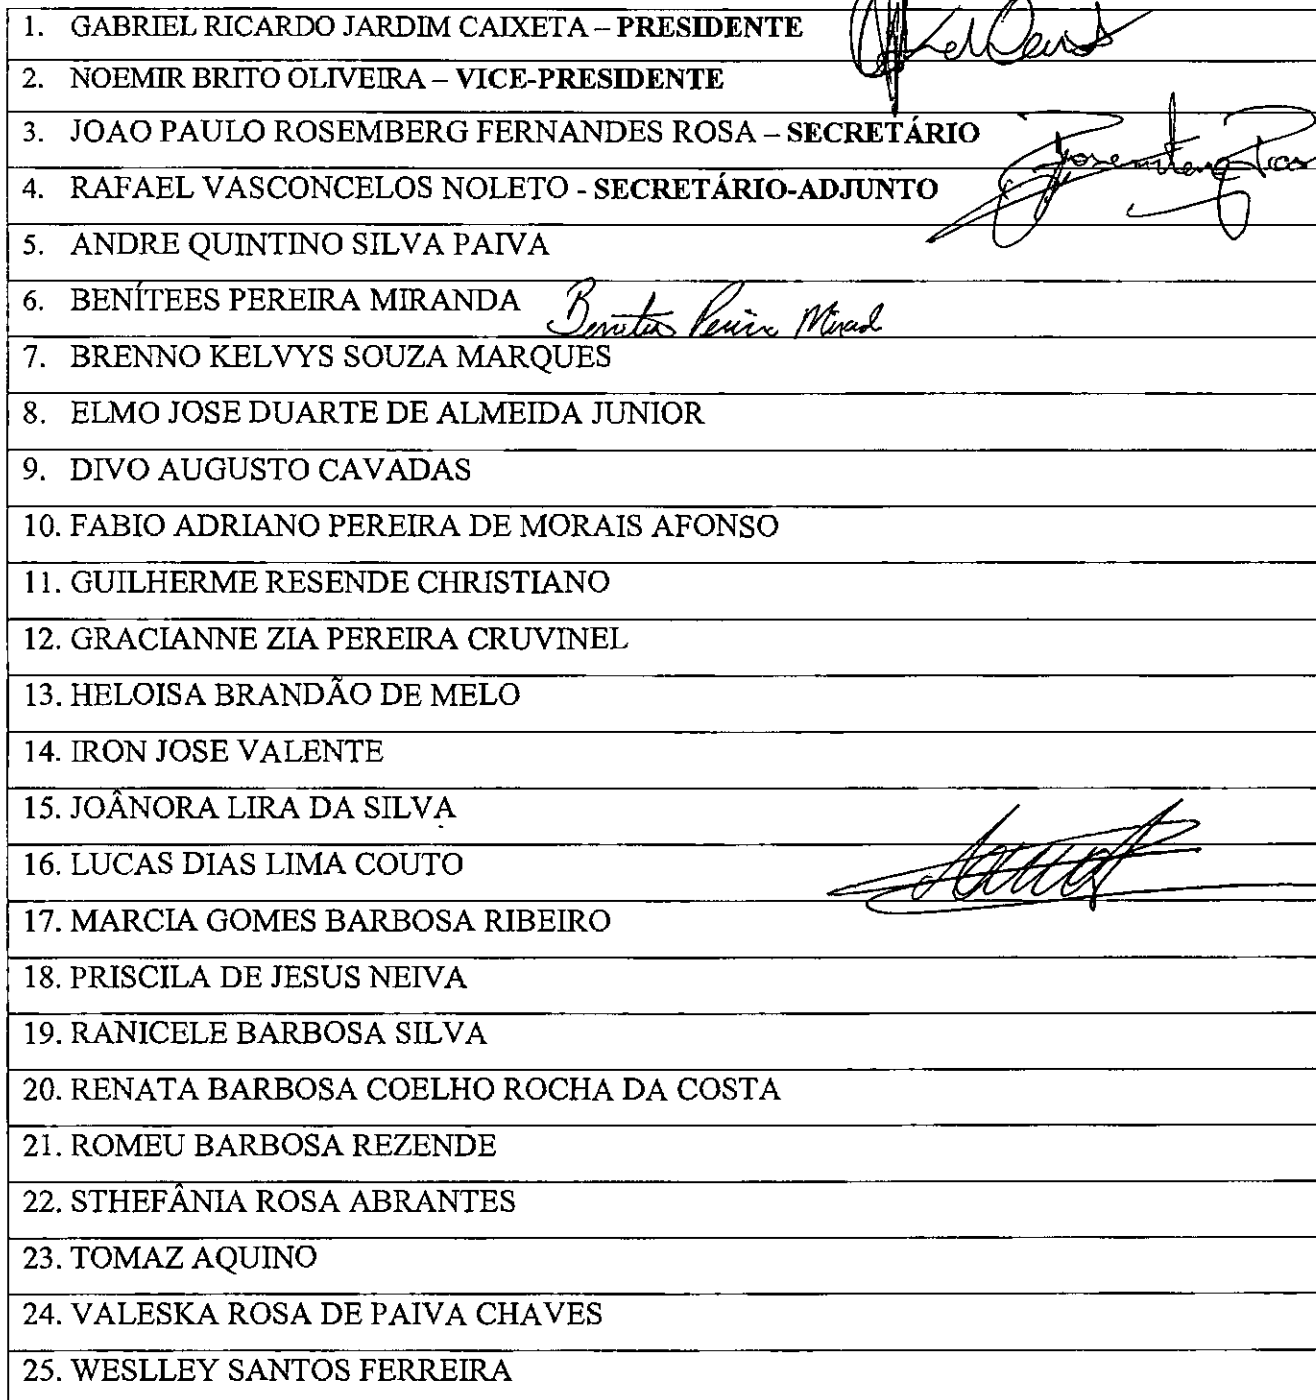 1. GABRIEL RICARDO JARDIM CAIXETA – PRESIDENTE
2. NOEMIR BRITO OLIVEIRA – VICE-PRESIDENTE
3. JOAO PAULO ROSEMBERG FERNANDES ROSA – SECRETÁRIO
4. RAFAEL VASCONCELOS NOLETO - SECRETÁRIO-ADJUNTO
5. ANDRE QUINTINO SILVA PAIVA
6. BENÍTEES PEREIRA MIRANDA
7. BRENNO KELVYS SOUZA MARQUES
8. ELMO JOSE DUARTE DE ALMEIDA JUNIOR
9. DIVO AUGUSTO CAVADAS
10. FABIO ADRIANO PEREIRA DE MORAIS AFONSO
11. GUILHERME RESENDE CHRISTIANO
12. GRACIANNE ZIA PEREIRA CRUVINEL
13. HELOISA BRANDÃO DE MELO
14. IRON JOSE VALENTE
15. JOÂNORA LIRA DA SILVA
16. LUCAS DIAS LIMA COUTO
17. MARCIA GOMES BARBOSA RIBEIRO
18. PRISCILA DE JESUS NEIVA
19. RANICELE BARBOSA SILVA
20. RENATA BARBOSA COELHO ROCHA DA COSTA
21. ROMEU BARBOSA REZENDE
22. STHEFÂNIA ROSA ABRANTES
23. TOMAZ AQUINO
24. VALESKA ROSA DE PAIVA CHAVES
25. WESLLEY SANTOS FERREIRA